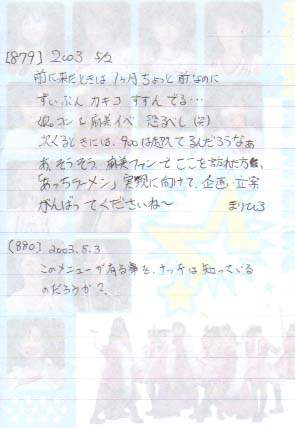 [879] 2003 5/2
前に来たときは 1ヶ月ちょっと前なのに
ずいぶん カキコ すすんでる…
娘。コン & 麻美イベ 恐るべし(笑)
次くるときには、900は超えてるんだろうなぁ
あ、そうそう 麻美ファンで ここを訪れた方は、
「あっちラーメン」実現に向けて、企画・立案
がんばってくださいね〜 まりひろ
(880) 2003.5.3
このメニューが有る事を、ナッチは知っている
のだろうか?